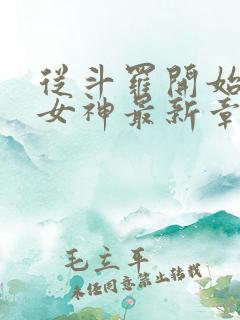 從斗羅開始
女神最新章
毛立平
未經同意禁止轉載